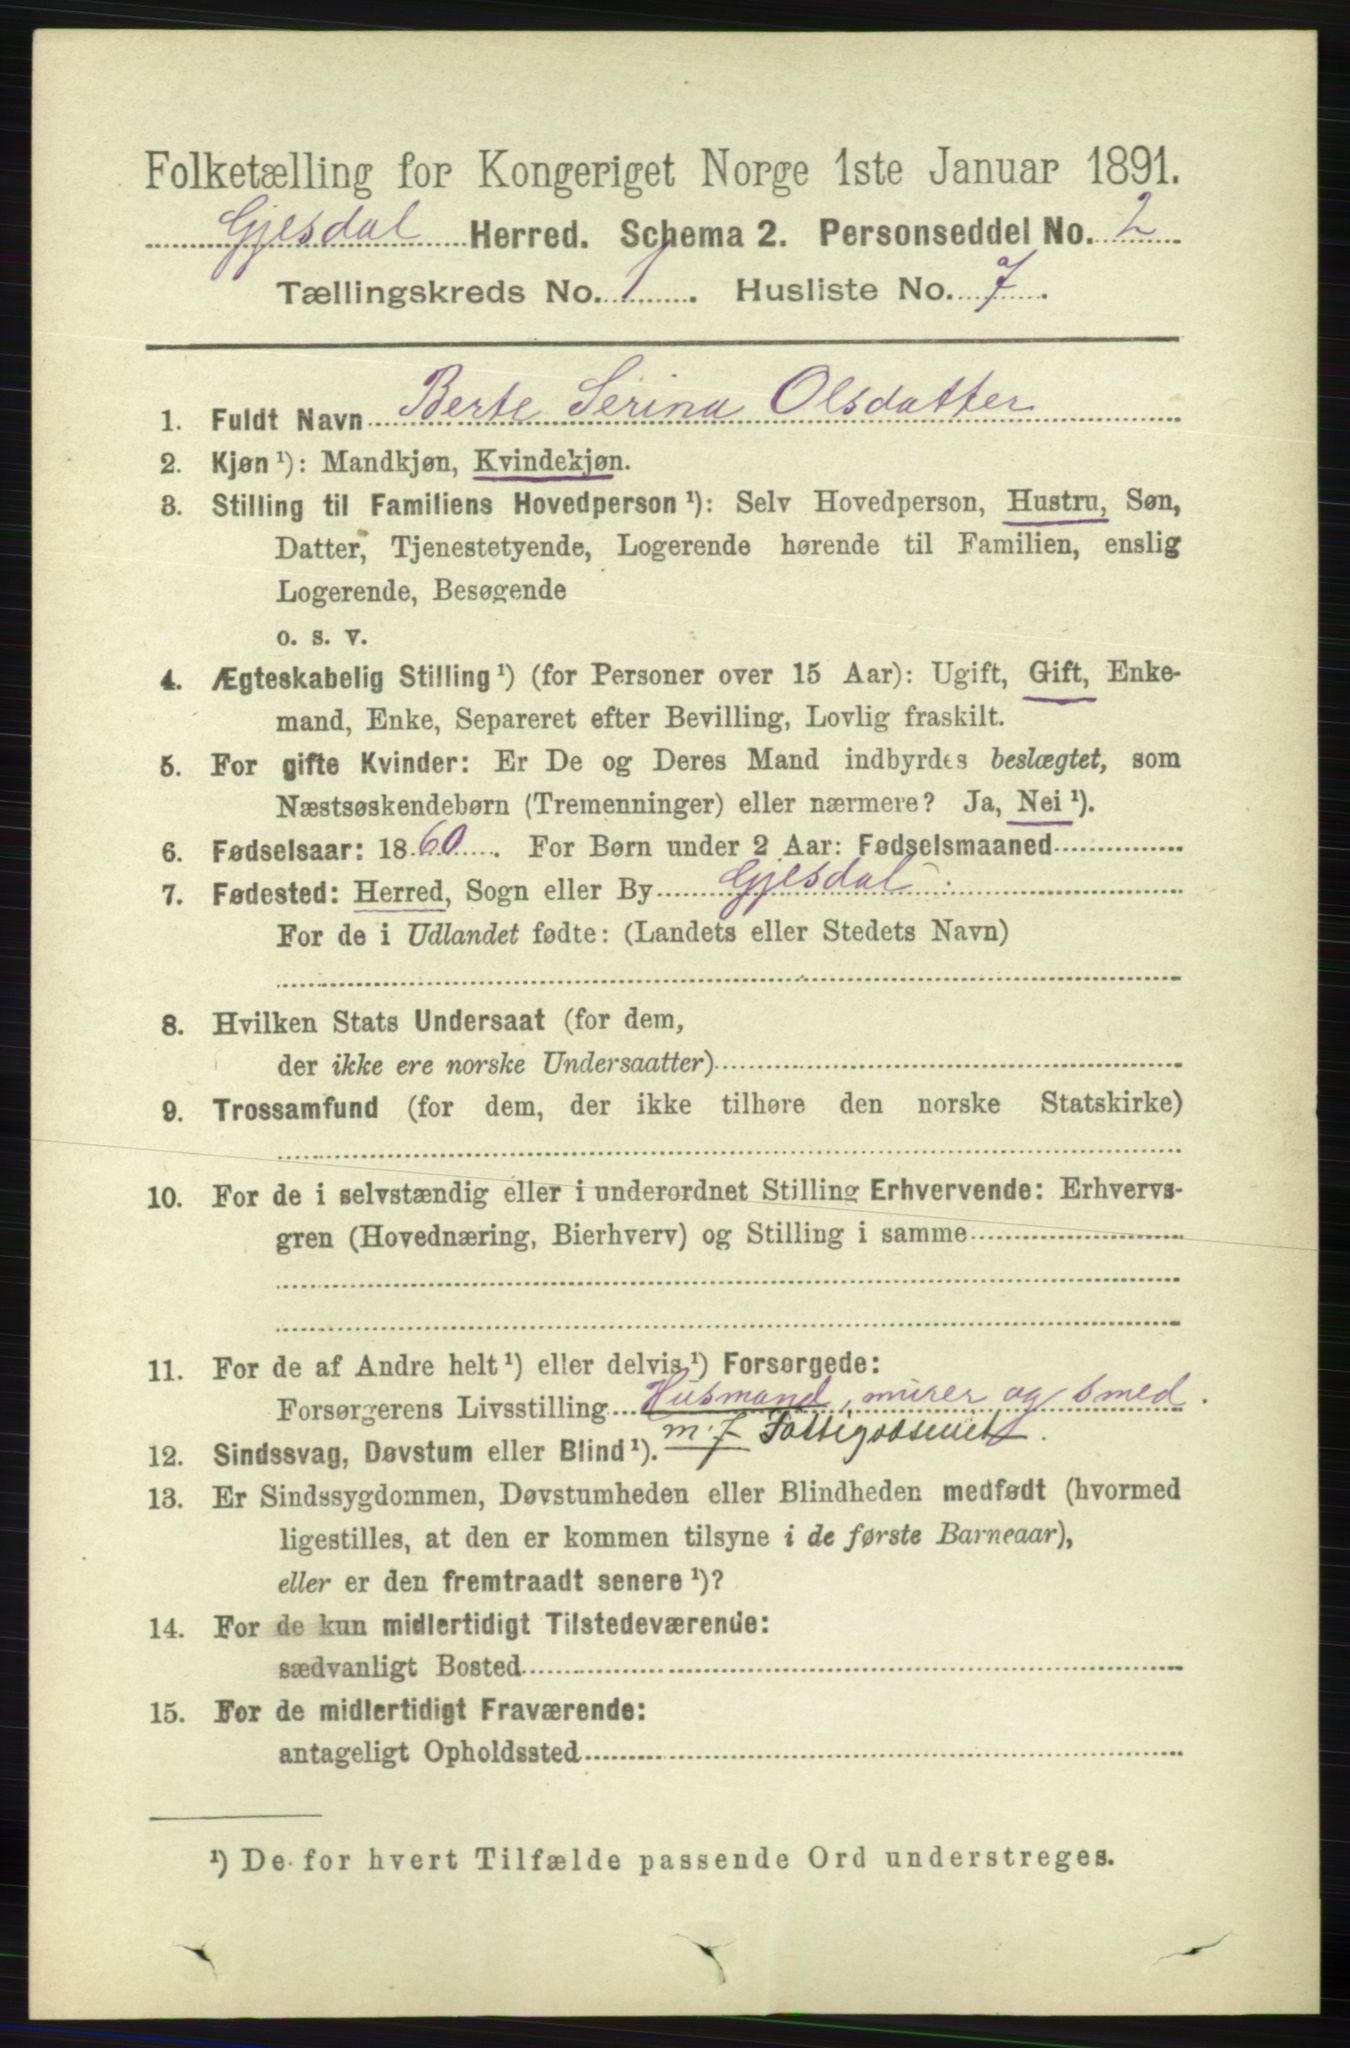 Folketælling for Kongeriget Norge 1ste Januar 1891.
Gjesdal Herred. Schema 2. Personseddel No. 2
Tællingskreds No. 1. Husliste No. 7.
1. Fuldt Navn Berte Serina Olsdatter
2. Kjøn ¹): Mandkjøn, Kvindekjøn.
3. Stilling til Familiens Hovedperson ¹): Selv Hovedperson, Hustru, Søn,
Datter, Tjenestetyende, Logerende hørende til Familien, enslig
Logerende, Besøgende
o. s. v.
4. Ægteskabelig Stilling ¹) (for Personer over 15 Aar): Ugift, Gift, Enke-
mand, Enke, Separeret efter Bevilling, Lovlig fraskilt.
5. For gifte Kvinder: Er De og Deres Mand indbyrdes beslægtet, som
Næstsøskendebørn (Tremenninger) eller nærmere? Ja, Nei ¹).
6. Fødselsaar: 1860. For Børn under 2 Aar: Fødselsmaaned
7. Fødested: Herred, Sogn eller By Gjesdal.
For de i Udlandet fødte: (Landets eller Stedets Navn)
8. Hvilken Stats Undersaat (for dem,
der ikke ere norske Undersaatter)
9. Trossamfund (for dem, der ikke tilhøre den norske Statskirke)
10. For de i selvstændig eller i underordnet Stilling Erhvervende: Erhvervs-
gren (Hovednæring, Bierhverv) og Stilling i samme
11. For de af Andre helt ¹) eller delvis ¹) Forsørgede:
Forsørgerens Livsstilling Husmand, murer og smed.
m. J
12. Sindssvag, Døvstum eller Blind ¹).
13. Er Sindssygdommen, Døvstumheden eller Blindheden medfødt (hvormed
ligestilles, at den er kommen tilsyne i de første Barneaar),
eller er den fremtraadt senere ¹)?
14. For de kun midlertidigt Tilstedeværende:
sædvanligt Bosted
15. For de midlertidigt Fraværende:
antageligt Opholdssted
¹) De for hvert Tilfælde passende Ord understreges.